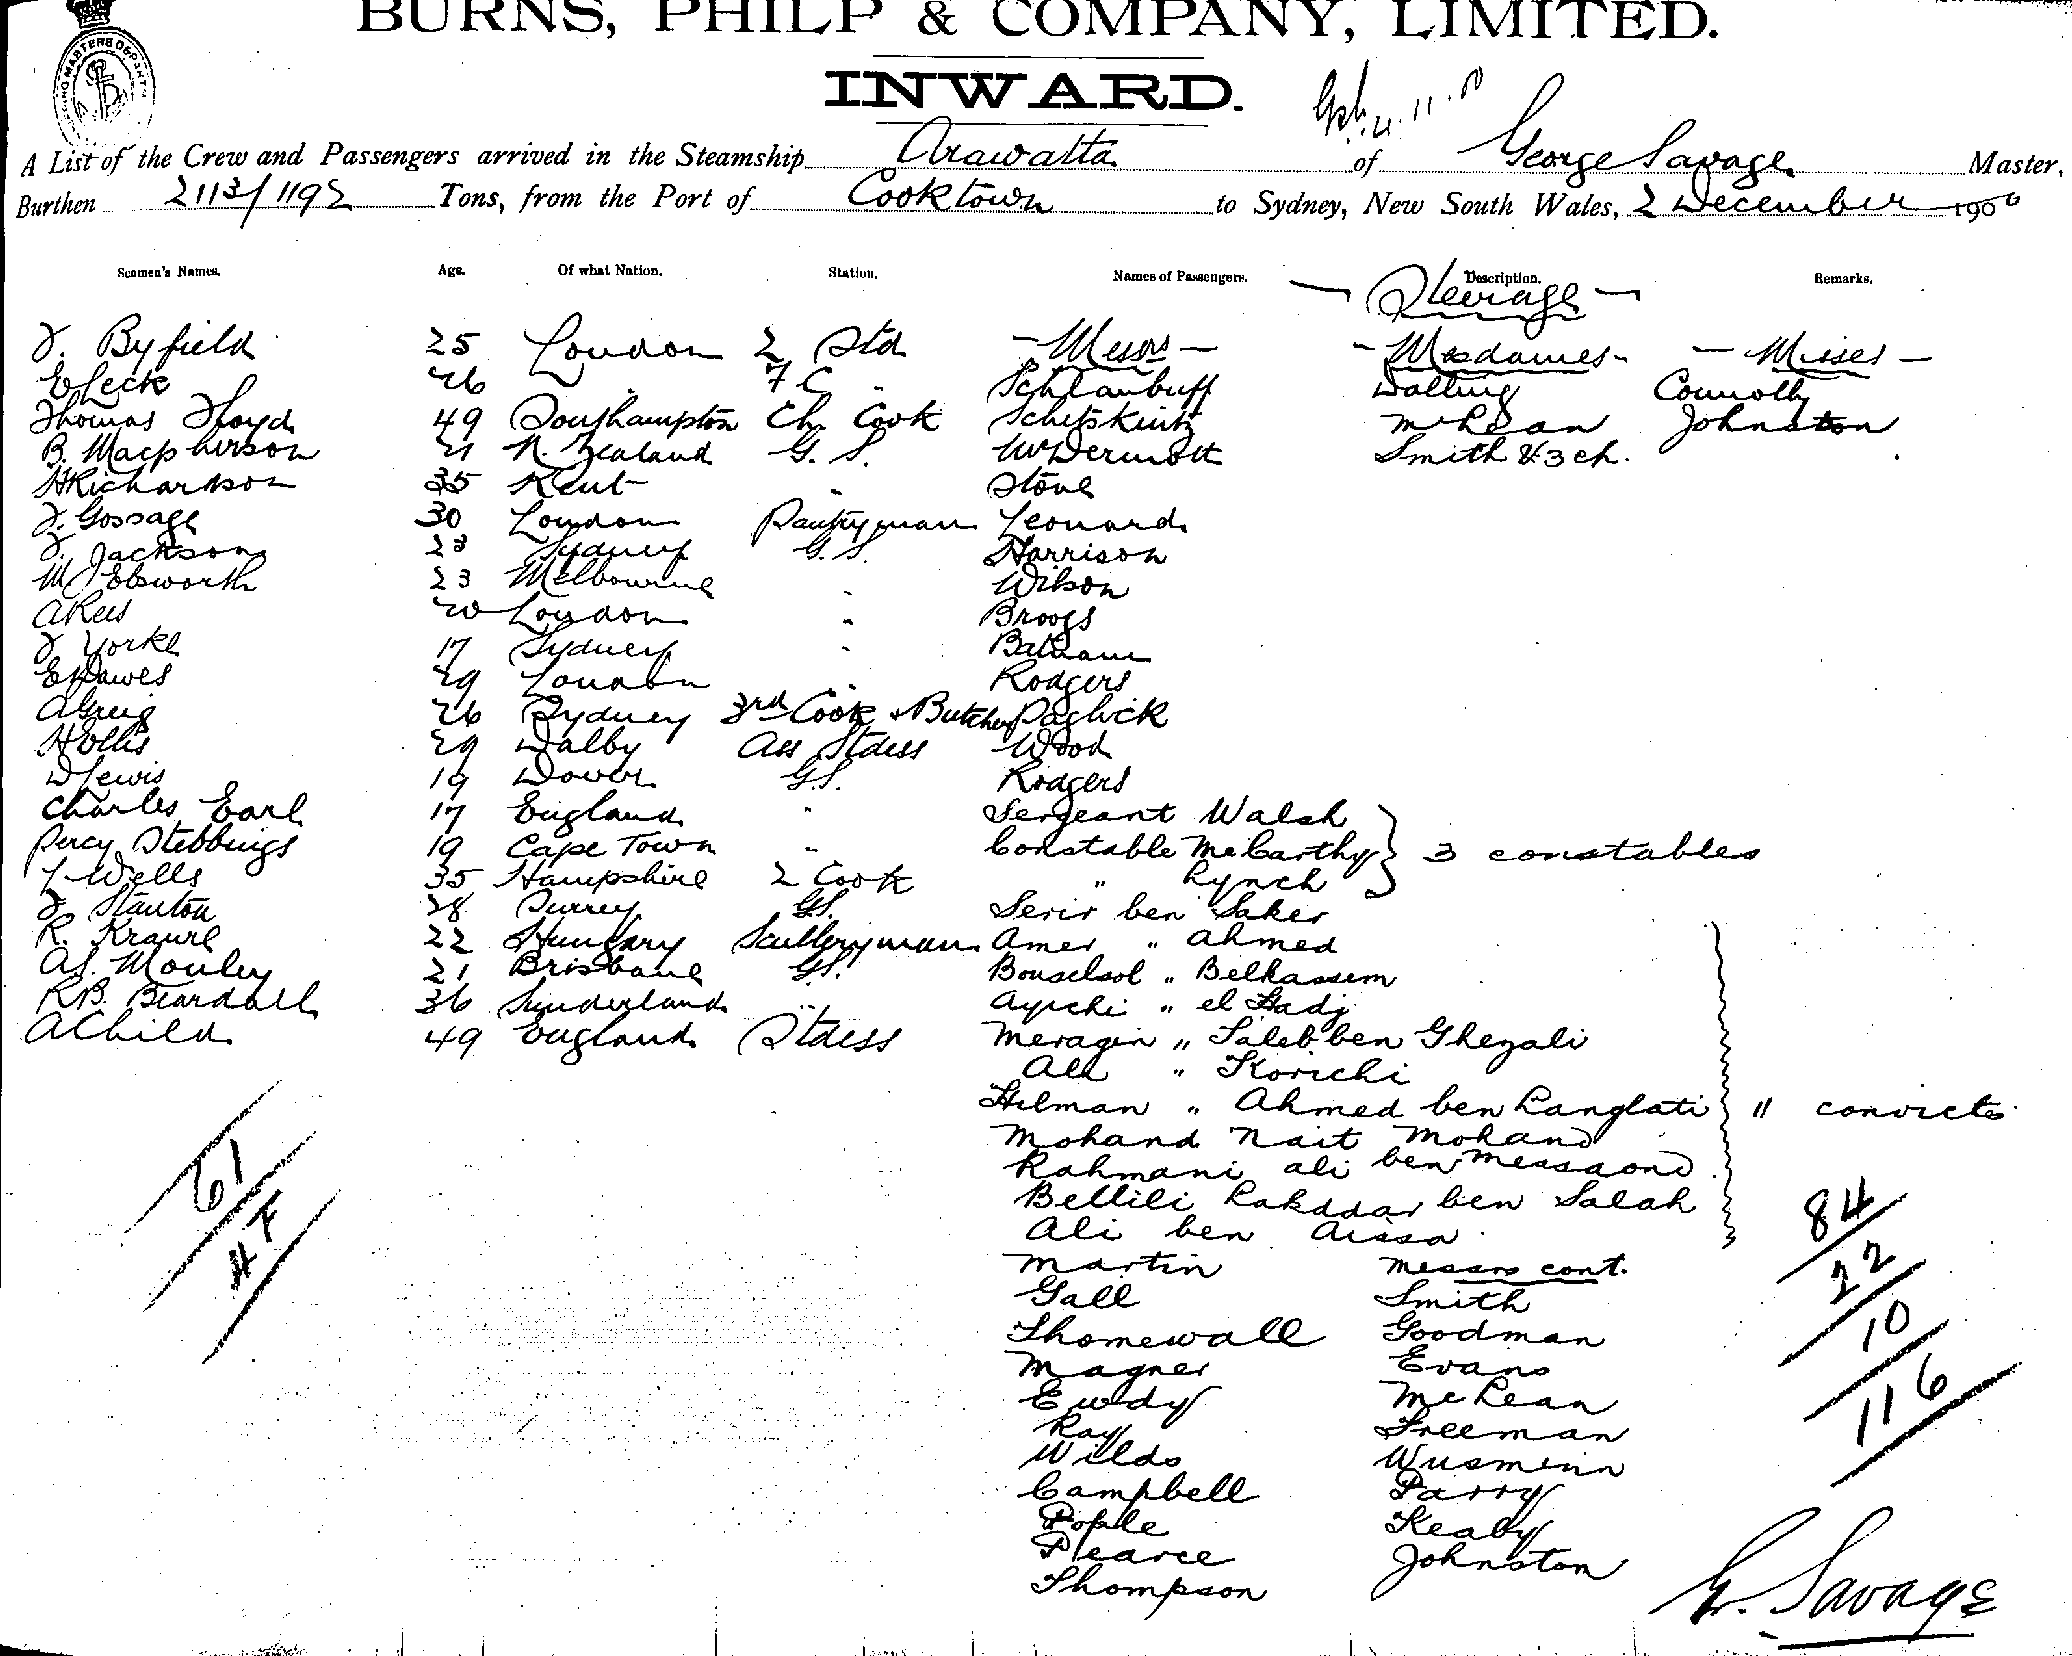 BURNS, PHILP & COMPANY, LIMITED.
INWARD.
A List of the Crew and Passengers arrived in the Steamship Arawatta of George Savage Master,
Burthen 2113/1192 Tons, from the Port of Cooktown to Sydney, New South Wales, 2 December 1900
Seamen's Names. Age. Of what Nation. Station. Names of Passengers. Description. Remarks.
— Steerage —
J. Byfield 25 London 2 Std — Messrs — — Mesdames — — Misses —
E Leck 26 " F C " Schlanbuff Walling Connolly
Thomas Floyd 49 Southampton Ch. Cook Schetskintz McLean Johnston
B. Macpherson 21 N. Zealand G. S. McDermott Smith & 3 ch.
H Richardson 35 Kent " Stone
J. Gossage 30 London Pantryman Leonard
J. Jackson 23 Sydney G. S. Harrison
W J Ebsworth 23 Melbourne " Wilson
A Rees 20 London " Broogs
J Yorke 17 Sydney " Batnam
E Dawes 29 London " Rodgers
A Greig 26 Sydney 3rd Cook & Butcher Paglick
Hollis 29 Dalby Ass Stdess Wood
D Lewis 19 Dover G.S. Rodgers
Charles Earl 17 England " Sergeant Walsh
Percy Stebbings 19 Cape Town " Constable McCarthy } 3 constables
L Wells 35 Hampshire 2 Cook " Lynch
J Stanton 28 Surrey G.S. Serir ben Saker
R. Kraure 22 Hungary Sculleryman Amer " Ahmed
A J. Mouley 21 Brisbane G.S. Bouselsol " Belkassem
R B. Beardall 36 Sunderland " Ayichi " el Hadj
A Child 49 England Stdess Meragin " Saleb ben Ghezali
Ali " Korichi
Hilman " Ahmed ben Langlati } 11 convicts
Mohand Nait Mohand
Rahmani ali ben Messaond
Bellili Lakddar ben Salah
Ali ben Aissa
Martin Messrs cont.
Gall Smith
Thomewall Goodman
Magner Evans
Ewdy McLean
Ray Freeman
Wilds Wusminn
Campbell Parry
Pople Keaby
Pearce Johnston
Thompson
61
4 F
84
22
10
116
G. Savage